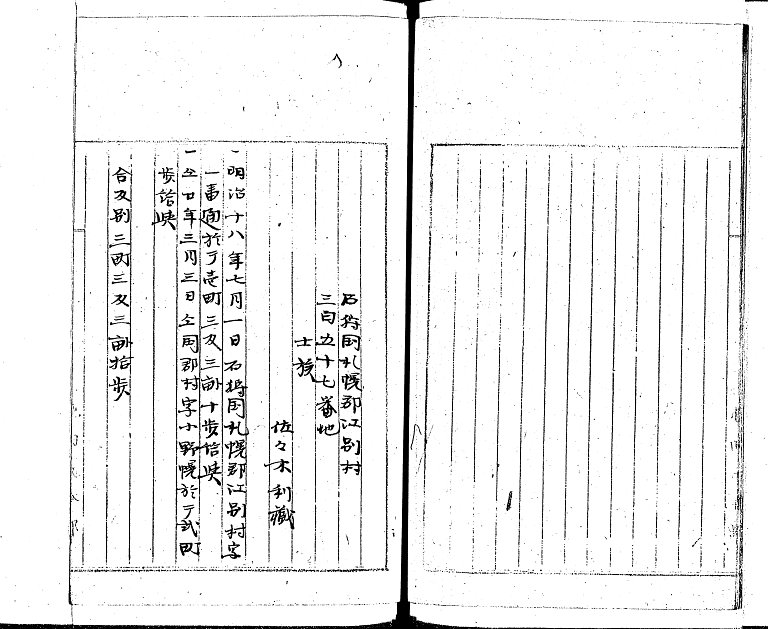 石狩国札幌郡江別村
三百五十七番地
士族
佐々木利蔵
一明治十八年七月一日石狩国札幌郡江別村字
一番通於テ壱町三反三畝十歩給与
一仝廿年三月三日仝国郡村字小野幌於テ弐町
歩給与
合反別三町三反三畝拾歩